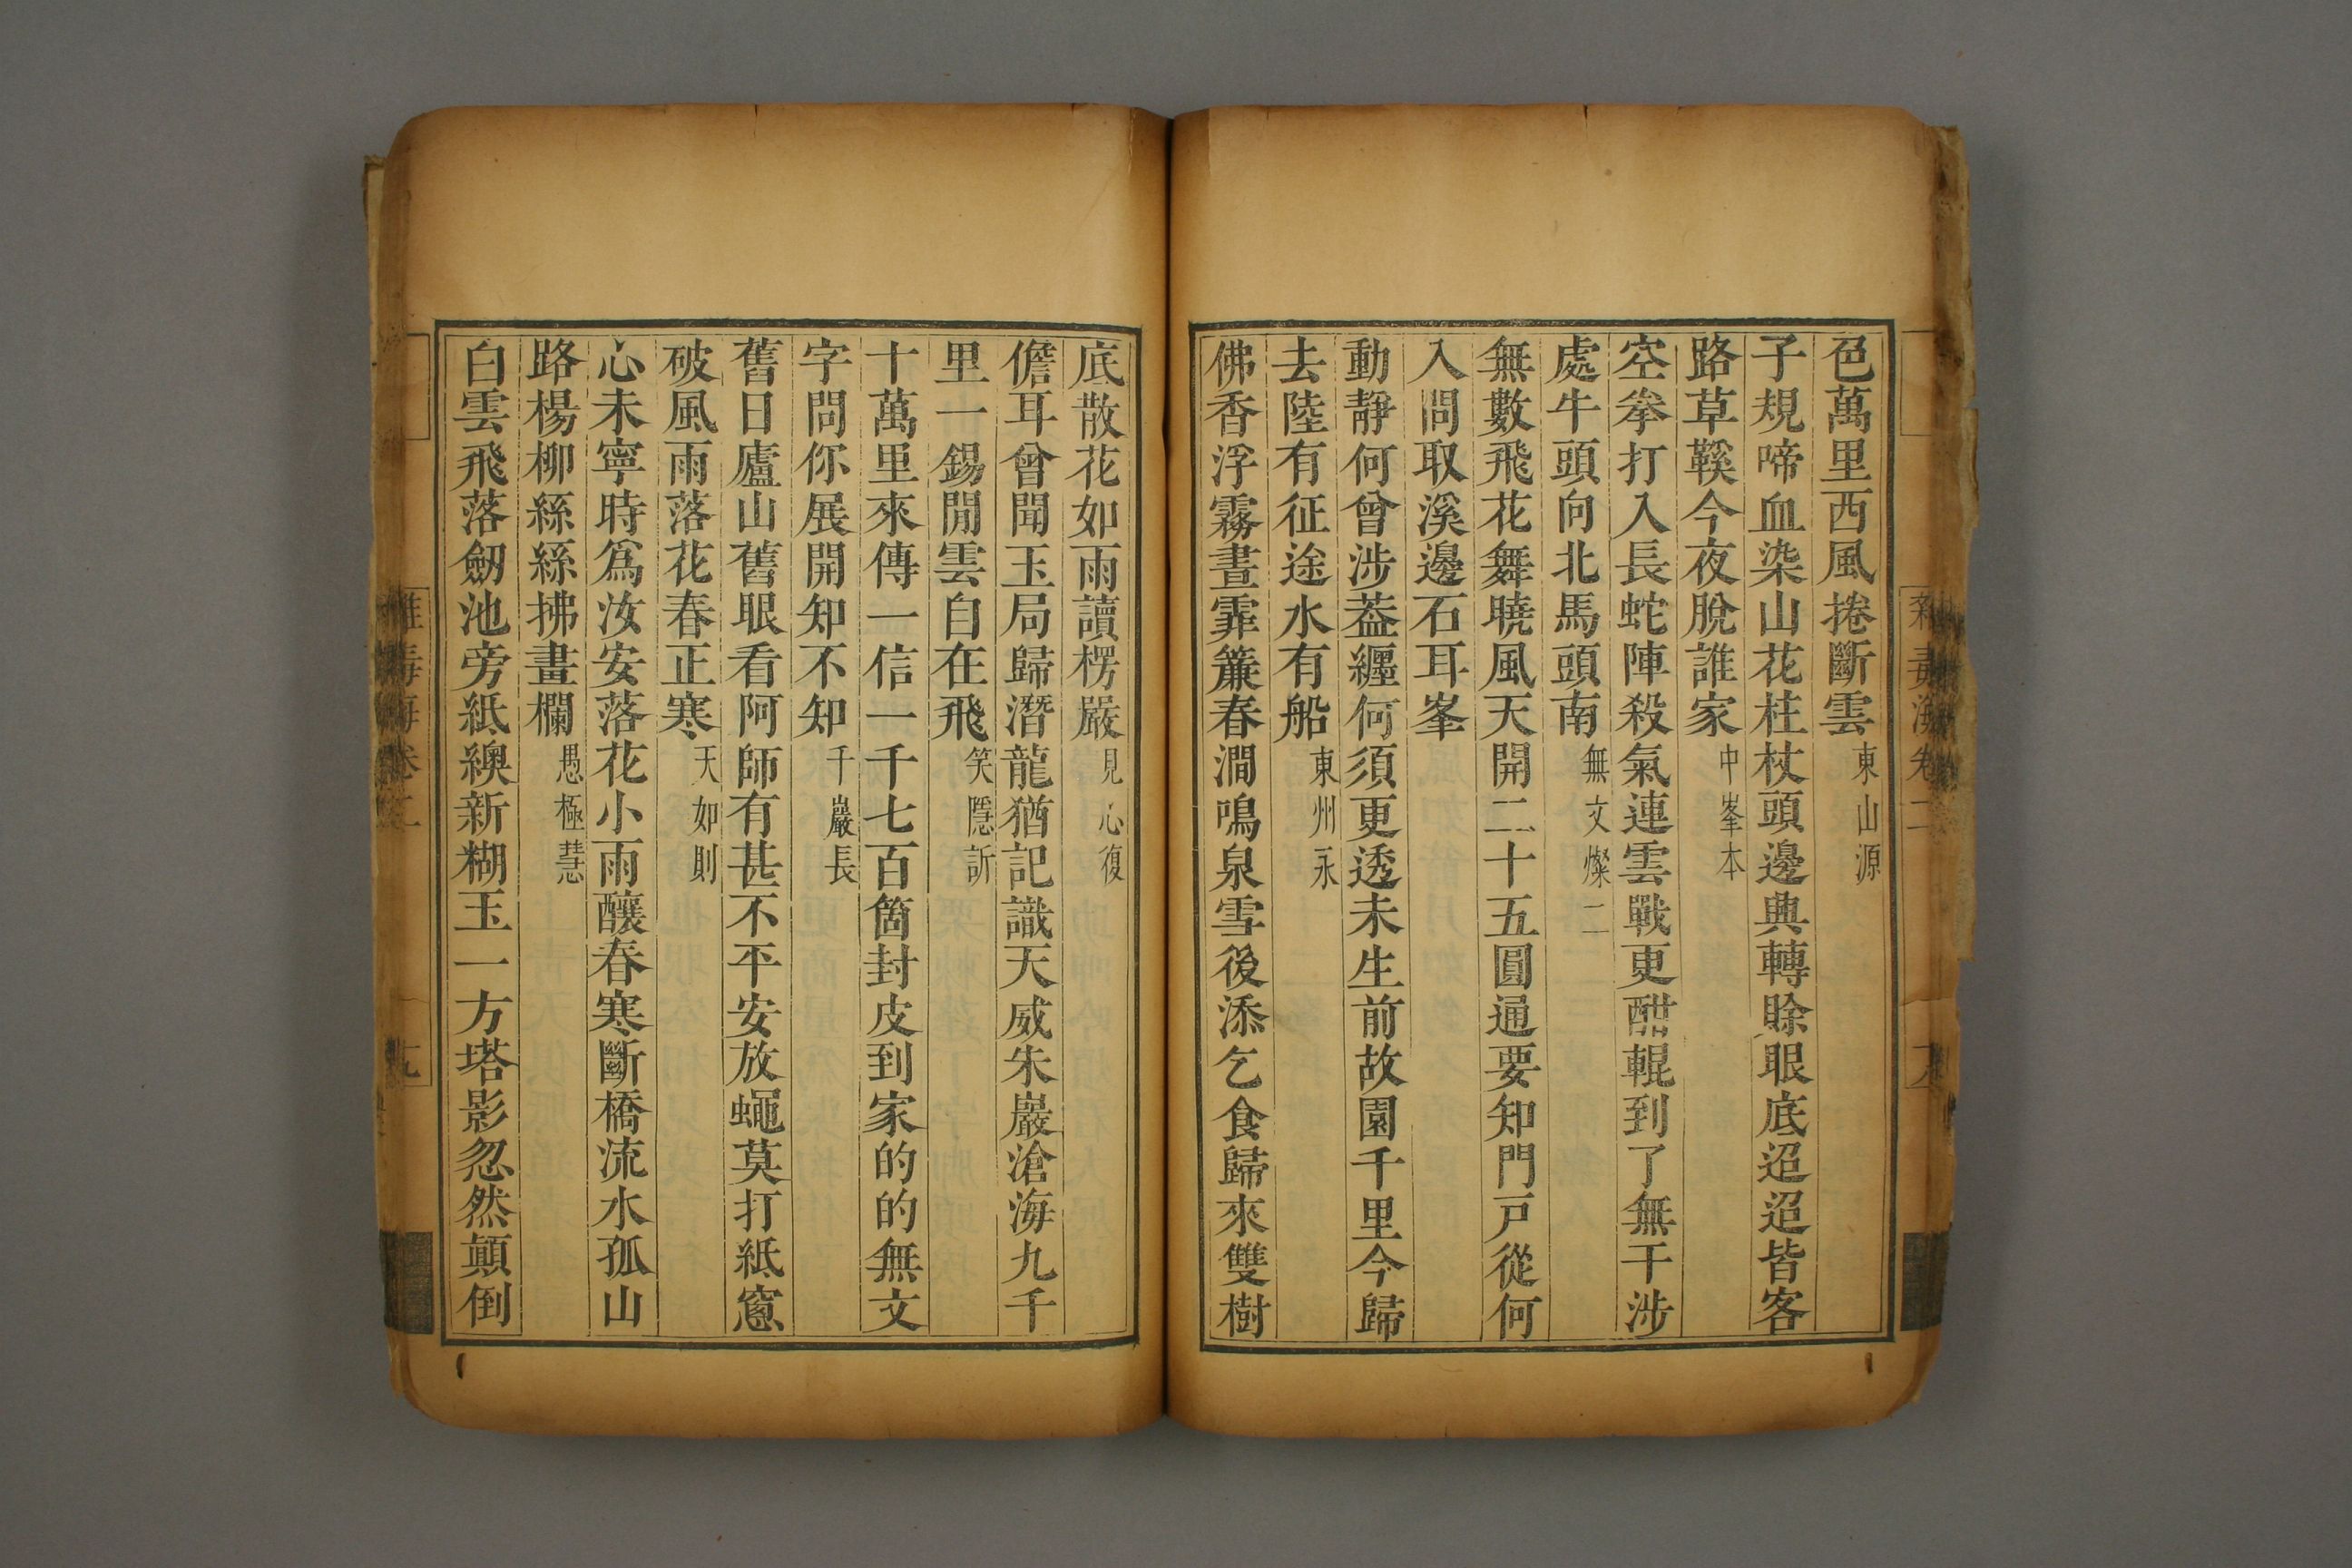 色萬里西風捲斷雲東山源
子規啼血染山花柱杖頭邊興轉賒眼底迢迢皆客
路草鞵今夜脫誰家中峯本
空拳打入長蛇陣殺氣連雲戰更酣輥到了無干涉
處牛頭向北馬頭南無文燦二
無數飛花舞曉風天開二十五圓通要知門戸從何
入問取溪邊石耳峯
動靜何曾涉葢纏何須更透未生前故園千里今歸
去陸有征途水有船東州永
佛香浮霧晝霏簾春澗鳴泉雪後添乞食歸來雙樹
底散花如雨讀楞嚴見心復
儋耳曾聞玉局歸潛龍猶記識天威朱巖滄海九千
里一錫閒雲自在飛笑隱訢
十萬里來傳一信一千七百箇封皮到家的的無文
字問你展開知不知千巖長
舊日廬山舊眼看阿師有甚不平安放蠅莫打紙窻
破風雨落花春正寒天如則
心未寧時爲汝安落花小雨釀春寒斷橋流水孤山
路楊柳絲絲拂畫欄愚極慧
白雲飛落劒池旁紙繌新糊玉一方塔影忽然顛倒
卷二